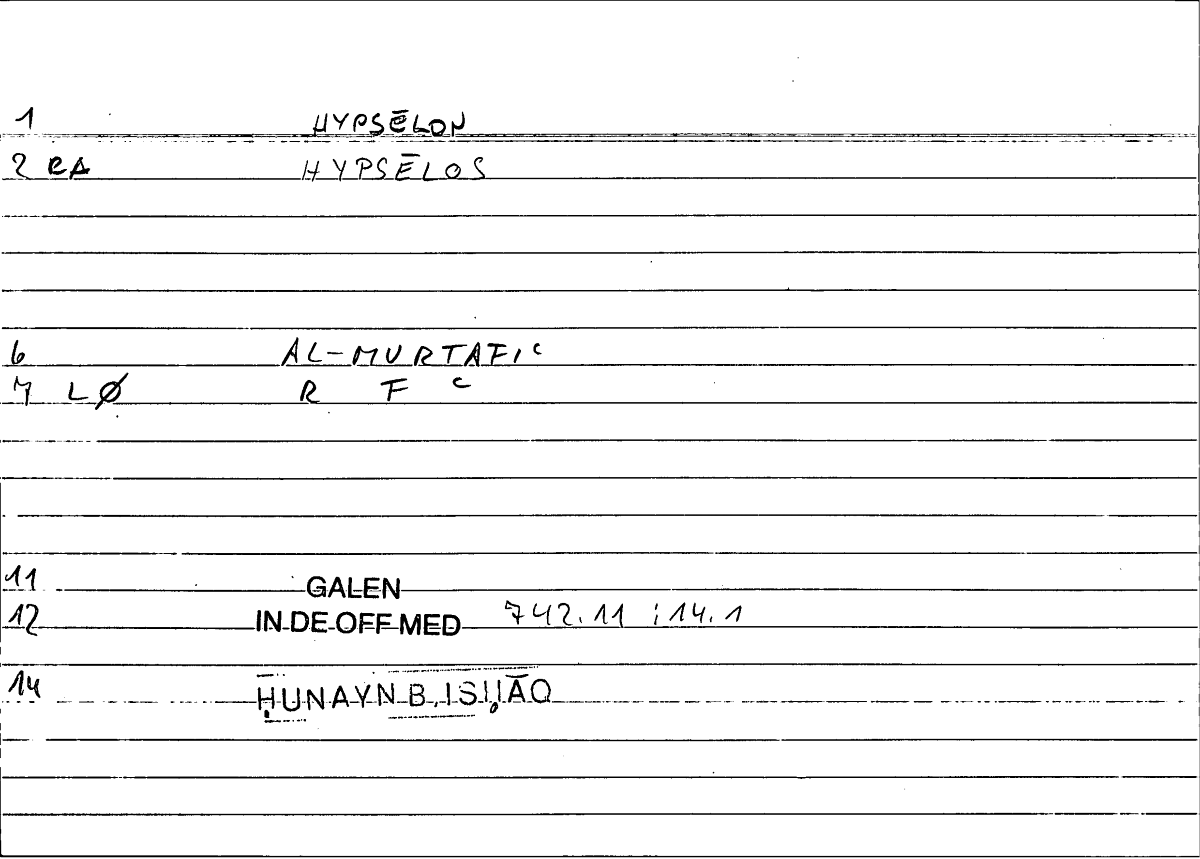 1 HYPSĒLON
2 EA HYPSĒLOS
6 AL-MURTAFIᶜ
7 LØ R F ᶜ
11 GALEN
12 IN DE OFF MED 742.11 ; 14.1
14 ḤUNAYN B. ISḤĀQ